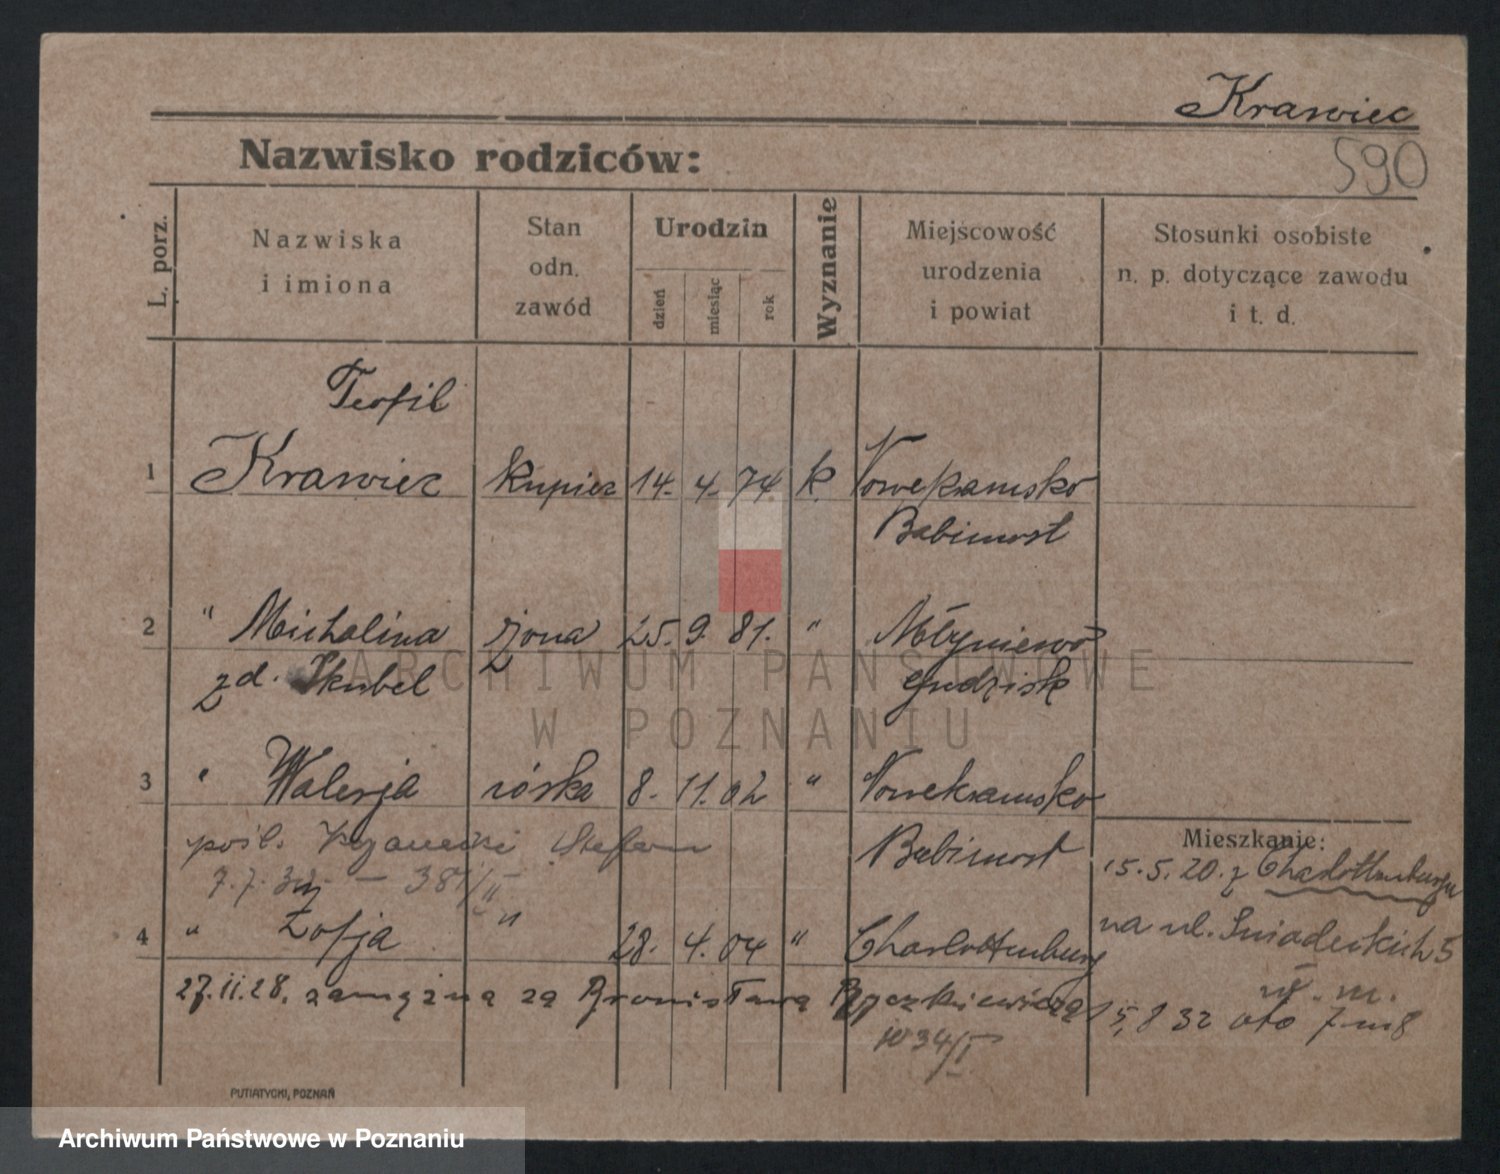 Krawiec
Nazwisko rodziców:
590
L. porz.
Nazwiska
i imiona
Stan
odn.
zawód
Urodzin
dzień
miesiąc
rok
Wyznanie
Miejscowość
urodzenia
i powiat
Stosunki osobiste
n. p. dotyczące zawodu
i t. d.
Teofil
1 Krawiec kupiec 14. 4. 74 k. Nowekramsko
Babimost
2 " Michalina żona 25. 9. 81. " Młyniewo
zd. Skubel Grudzisk
3 " Walerja córka 8. 11. 02 " Nowekramsko
pośl. Stefan Babimost
7.7. — 381/II
4 " Zofja " 28. 4. 04 " Charlottenburg
27.II.28. zamężna za Bronisława Ryczkiewicza
34/I
Mieszkanie:
15.5.20. z Charlottenburga
na ul. Śniadeckich 5
w. m.
15,8 32 oto 7 m 8
PUTIATYCKI, POZNAŃ
ARCHIWUM PAŃSTWOWE
W POZNANIU
Archiwum Państwowe w Poznaniu